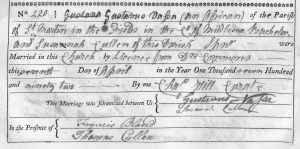 No. 220. Gustavus Vassa (an African) of the Parish
of St Martin in the Fields in the Cy of Middlesex Bachelor
and Susannah Cullen of this Parish Spnr were
Married in this Church by Licence from Drs Commons
this seventh Day of April in the Year One Thousand seven Hundred
and ninety two By me Chas Hill Curate
This Marriage was solemnized between Us
Gustavus Vassa
Susanah Cullen
In the Presence of
Francis Bland
Thomas Cullen